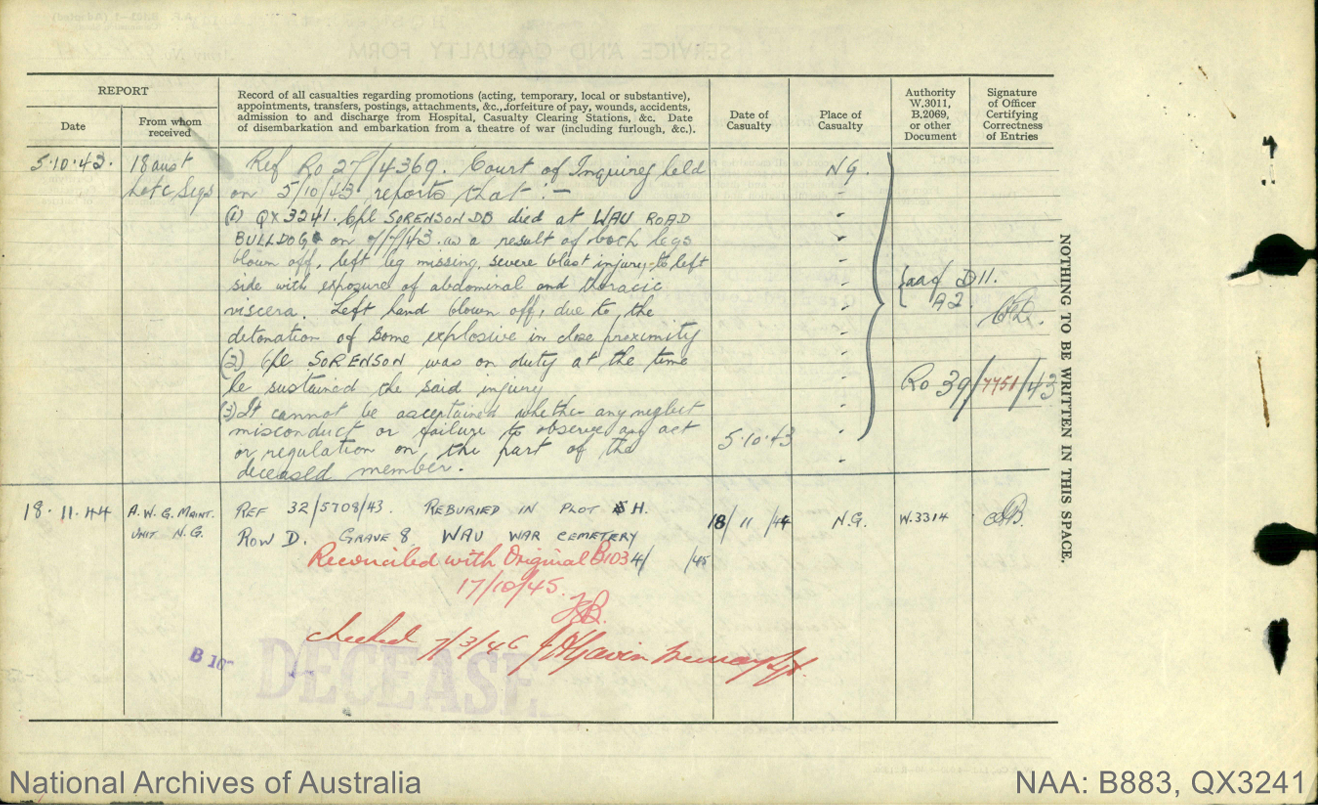 REPORT
Date
From whom received
Record of all casualties regarding promotions (acting, temporary, local or substantive),
appointments, transfers, postings, attachments, &c., forfeiture of pay, wounds, accidents,
admission to and discharge from Hospital, Casualty Clearing Stations, &c. Date
of disembarkation and embarkation from a theatre of war (including furlough, &c.).
Date of
Casualty
Place of
Casualty
Authority
W.3011,
B.2069,
or other
Document
Signature
of Officer
Certifying
Correctness
of Entries
5.10.43. 18 aust Ref Ro 27/4369. Court of Inquiry held NG.
L of C Sigs on 5/10/43 reports that :-
(1) QX3241. Cpl SORENSON DB died at WAU ROAD
BULLDOG on 7/7/43 as a result of both legs
blown off, left leg missing, severe blast injury to left
side with exposure of abdominal and thoracic
viscera. Left hand blown off, due to the
detonation of some explosive in close proximity
(2) Cpl SORENSON was on duty at the time
he sustained the said injury
(3) It cannot be ascertained whether any neglect
misconduct or failure to observe any act
or regulation on the part of the
deceased member.
5.10.43
D11.
A2.
Ro 39/7751/43
18.11.44 A.W.G. MAINT. REF 32/5708/43. REBURIED IN PLOT H. 18/11/44 N.G. W.3314
UNIT N.G. ROW D. GRAVE 8. WAU WAR CEMETERY
Reconciled with Original B103 4/ /45
17/10/45.
checked 7/3/46
B 10
DECEASE
NOTHING TO BE WRITTEN IN THIS SPACE.
SERVICE AND CASUALTY FORM
National Archives of Australia
NAA: B883, QX3241